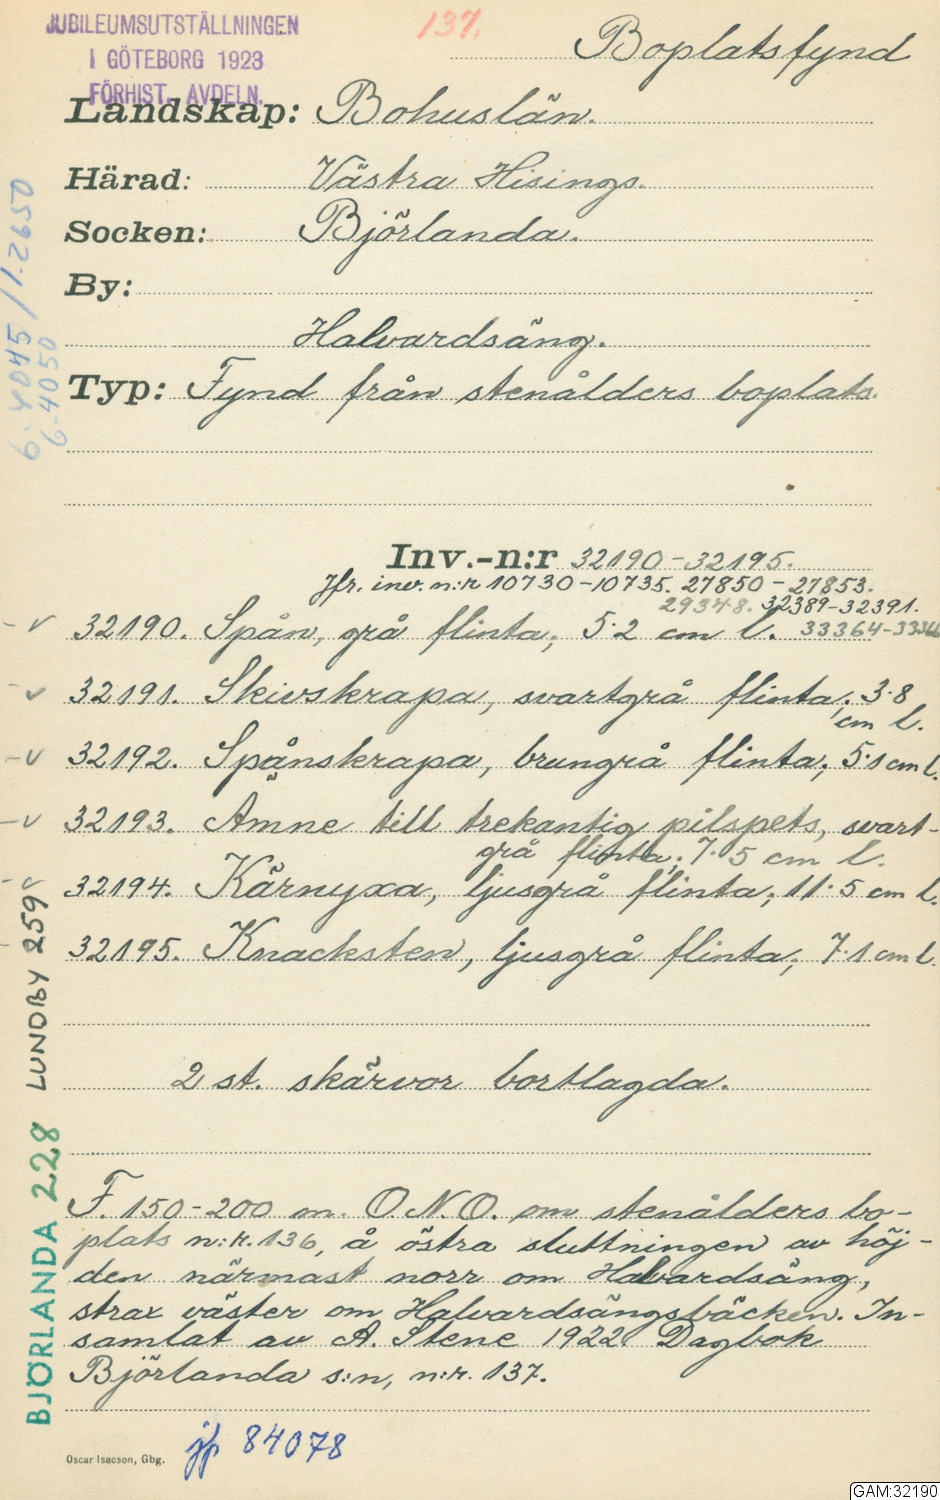 JUBILEUMSUTSTÄLLNINGEN
I GÖTEBORG 1923
FÖRHIST. AVDELN.
137.
Boplatsfynd
Landskap: Bohuslän.
Härad: Västra Hisings.
Socken: Björlanda.
By:
Halvardsäng.
Typ: Fynd från stenålders boplats.
Inv.-n:r 32190-32195.
Jfr. inv. n:r 10730-10735. 27850-27853.
29348. 32389-32391.
33364-33366
v 32190. Spån, grå flinta; 5·2 cm l.
v 32191. Skivskrapa, svartgrå flinta; 3·8
cm l.
v 32192. Spånskrapa, brungrå flinta; 5·1 cm l.
v 32193. Ämne till trekantig pilspets, svart-
grå flinta; 7·5 cm l.
v 32194. Kärnyxa, ljusgrå flinta; 11·5 cm l.
32195. Knacksten, ljusgrå flinta; 7·1 cm l.
2 st. skärvor bortlagda.
F. 150-200 m. O.N.O. om stenålders bo-
plats n:r. 136, å östra sluttningen av höj-
den närmast norr om Halvardsäng,
strax väster om Halvardsängsbäcken. In-
samlat av A. Stene 1922. Dagbok
Björlanda s:n, n:r. 137.
6-4045/1-2650
6-4050
LUNDBY 259
BJÖRLANDA 228
Oscar Isacson, Gbg.
jfr 84078
GAM:32190